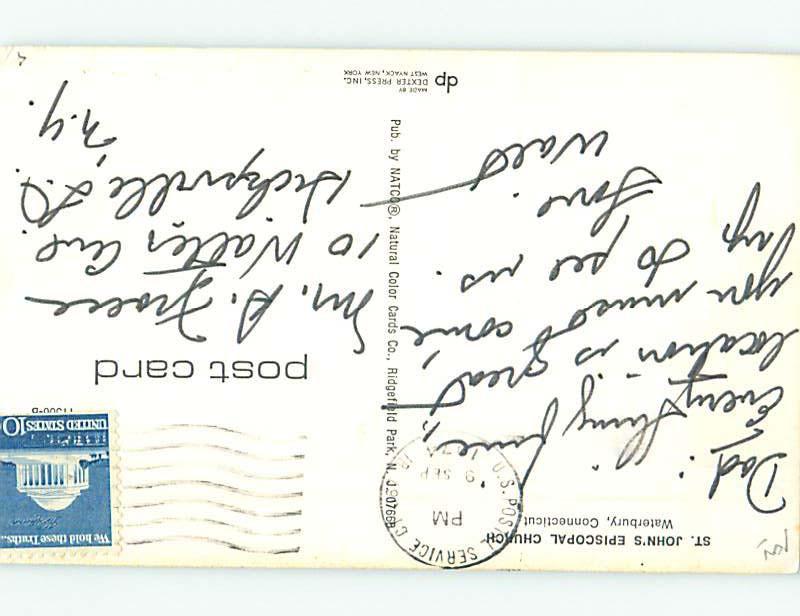 ST. JOHN'S EPISCOPAL CHURCH
Waterbury, Connecticut
Dad:
Everything fine,
location is great,
you must come
up to see us.
Love.
Walt
Pub. by NATCO®, Natural Color Cards Co., Ridgefield Park, N. J. 07660
MADE BY
DEXTER PRESS, INC.
WEST NYACK, NEW YORK
dp
U.S. POSTAL SERVICE CT
PM
9 SEP
We hold these Truths...
UNITED STATES 10
post card
Mr. A.
10 Walter Ave.
Hicksville, L.I.
N.Y.